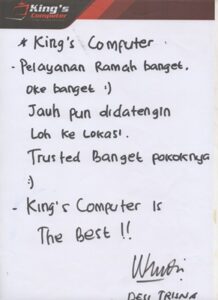 King's
Computer
* King's Computer
- Pelayanan Ramah banget.
Oke banget :)
Jauh pun didatengin
Loh ke Lokasi.
Trusted Banget pokoknya
:)
- King's Computer Is
The Best !!